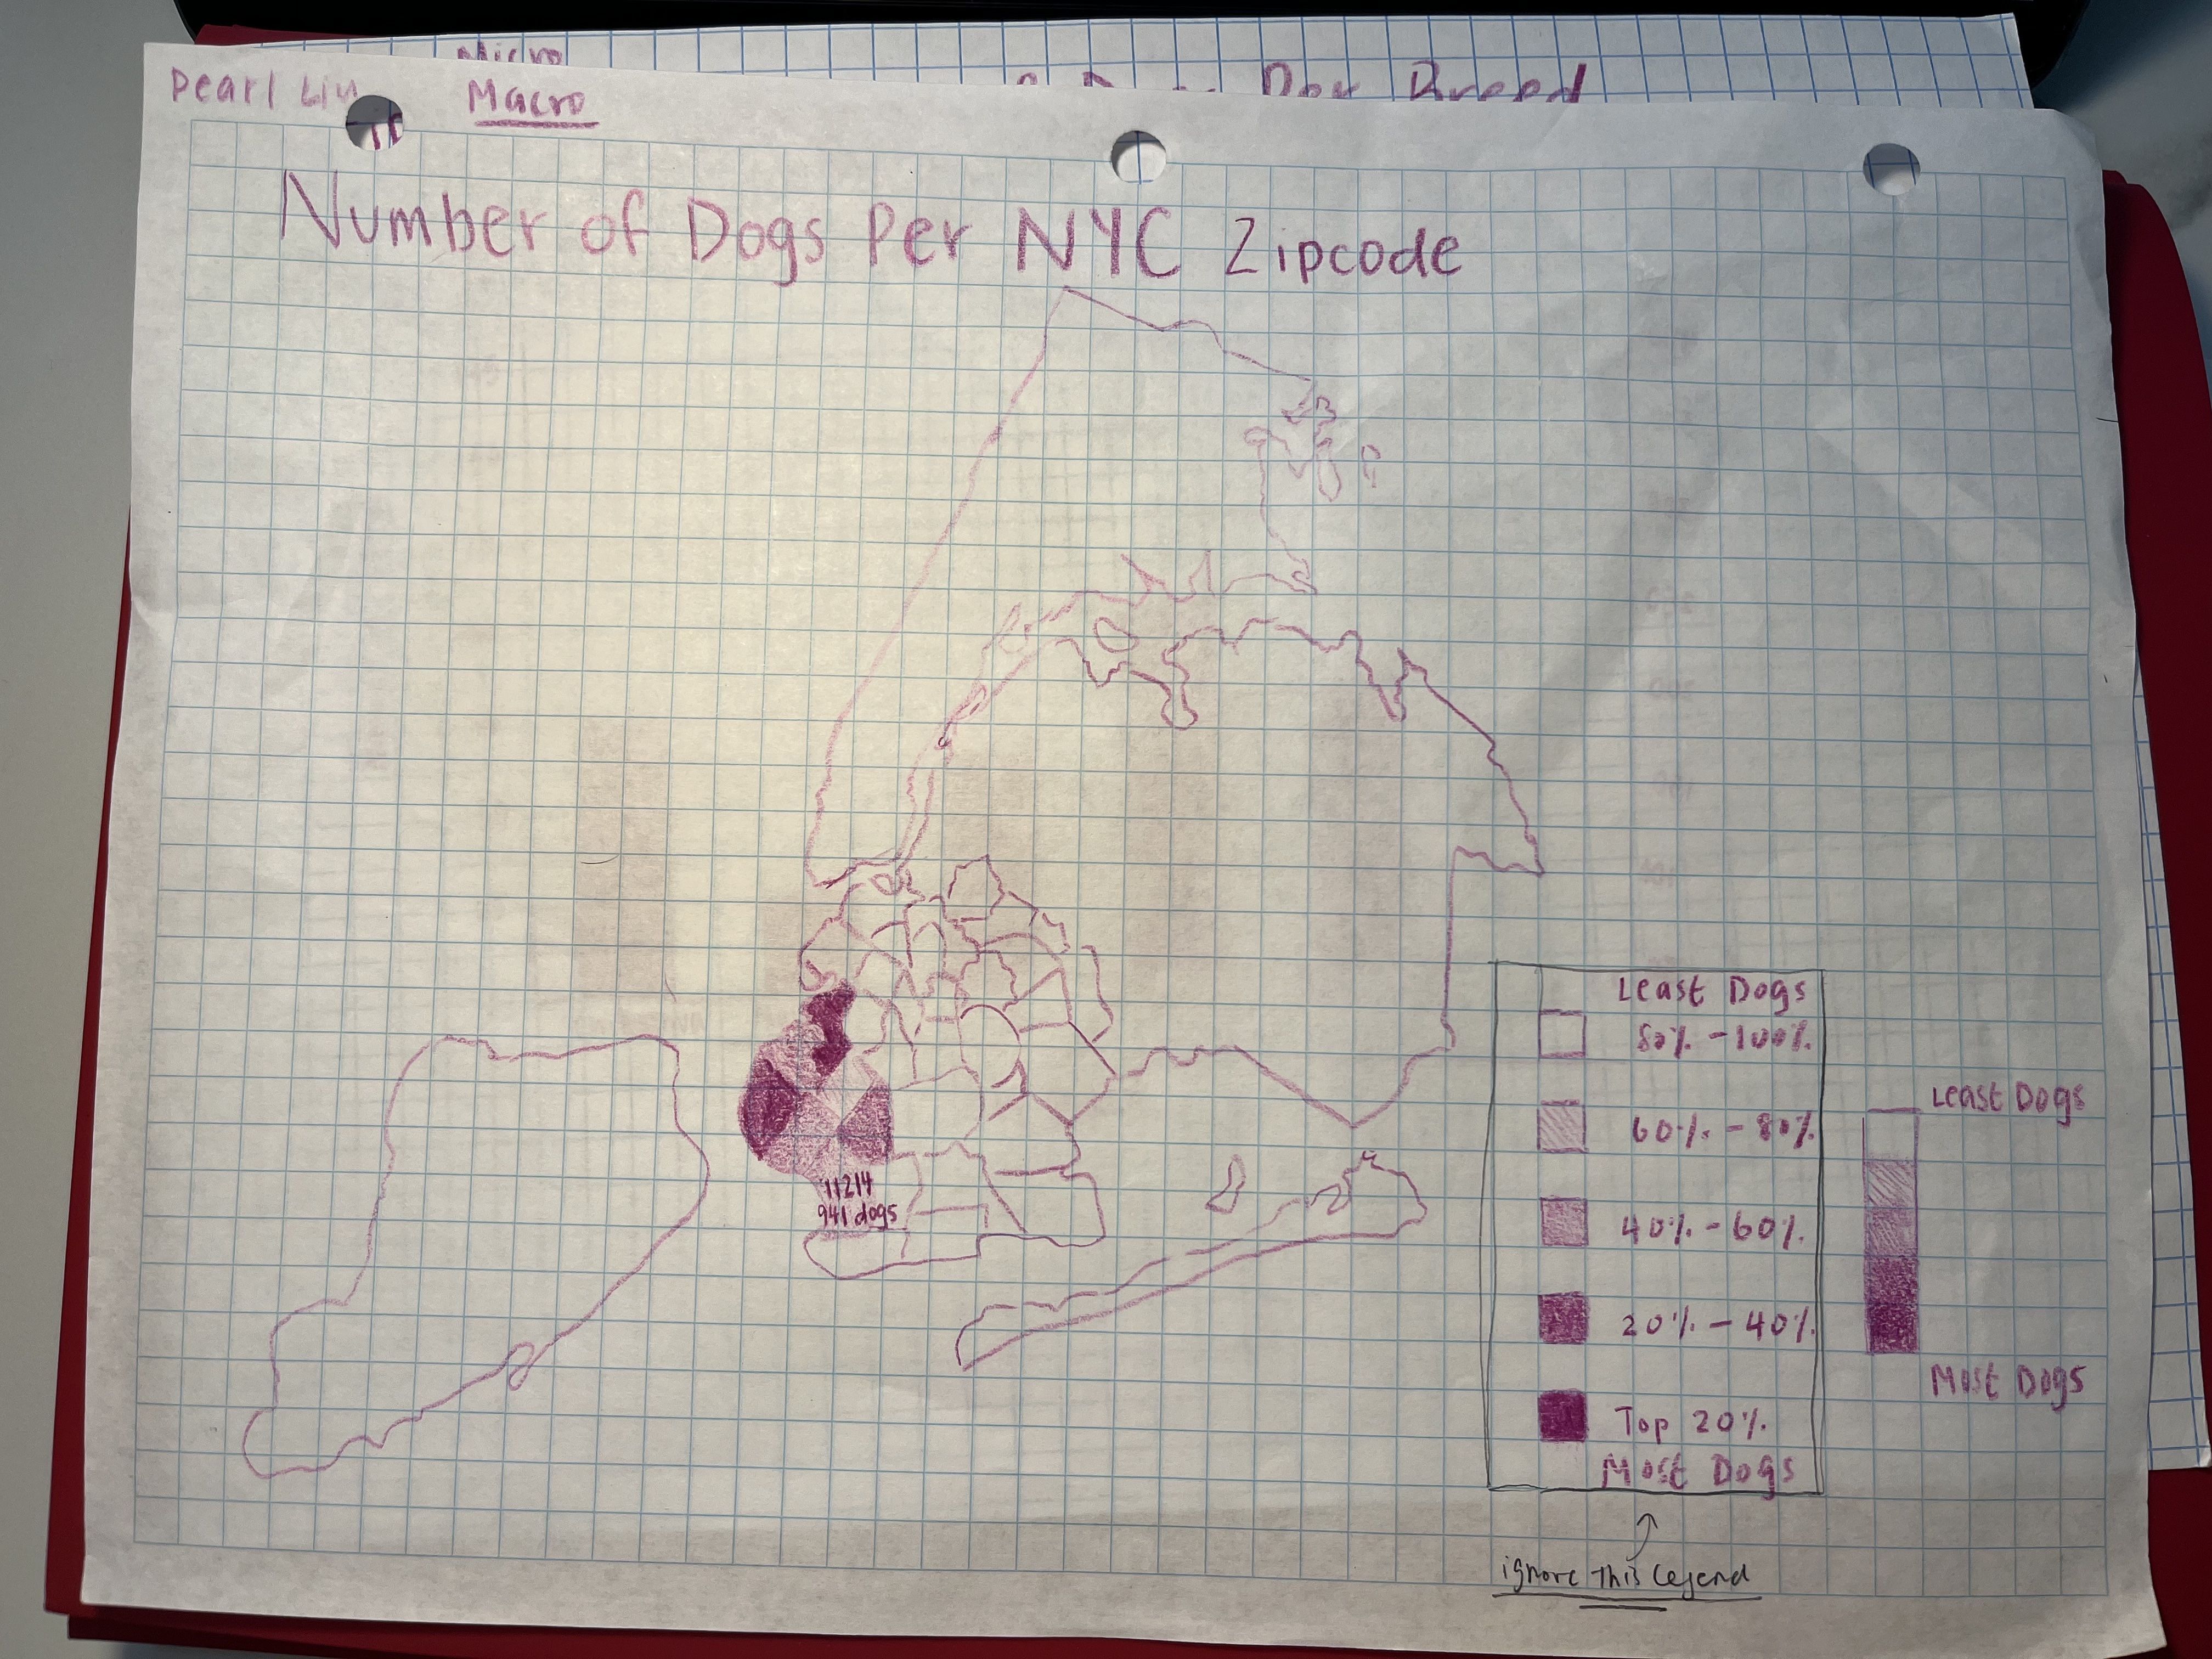 Micro
Dog Breed
Pearl Liu
Macro
Number of Dogs Per NYC Zipcode
11214
941 dogs
Least Dogs
80% - 100%
60% - 80%
40% - 60%
20% - 40%
Top 20%
Most Dogs
ignore this legend
Least Dogs
Most Dogs